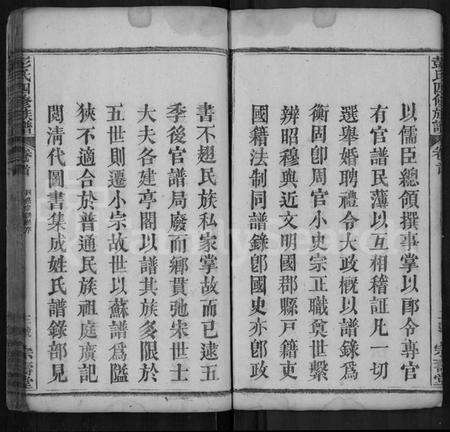 以儒臣總領撰事掌以郎令專官
有官譜民薄以互相稽証凡一切
選舉婚聘禮令大政概以譜錄爲
衡固卽周官小史宗正職奠世繫
辨昭穆與近文明國郡縣戸籍吏
國籍法制同譜錄卽國史亦卽政
書不趐民族私家掌故而已逮五
季後官譜局廢而鄉貫弛宋世士
大夫各建亭閣以譜其族多限於
五世則遷小宗故世以蘇譜爲隘
狹不適合於普通民族祖庭廣記
閱淸代圖書集成姓氏譜錄部見
彭氏四修族譜
卷首
宗壽堂